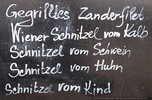 Gegrilltes Zanderfilet
Wiener Schnitzel vom Kalb
Schnitzel vom Schwein
Schnitzel vom Huhn
Schnitzel vom Kind